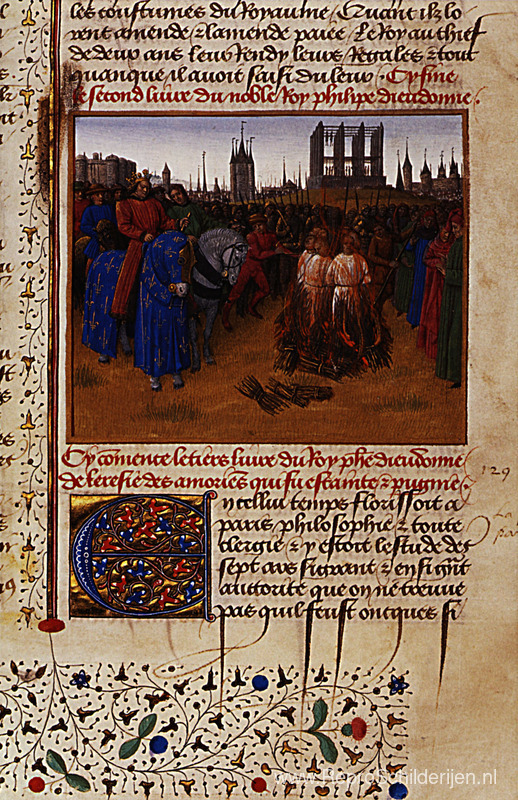 les coustumes du Royaume. Quant ilz lo
rent amende & lamende paiee. Le Roy au chief
de deux ans leur rendy leurs Regales & tout
quanque il avoit saisi du leur. Cy fine
le second livre du noble Roy phelipe dieudonne.
Cy comence le tiers livre du Roy phe dieudonne
de leresie des amoriens qui fu estainte &
En icellui temps florissoit a
paris philosophie & toute
clergie & y estoit lestude des
sept ars si grant & en si gnt
autorite que on ne treuve
pas quil feust oncques si
129
www.ReproSchilderijen.nl